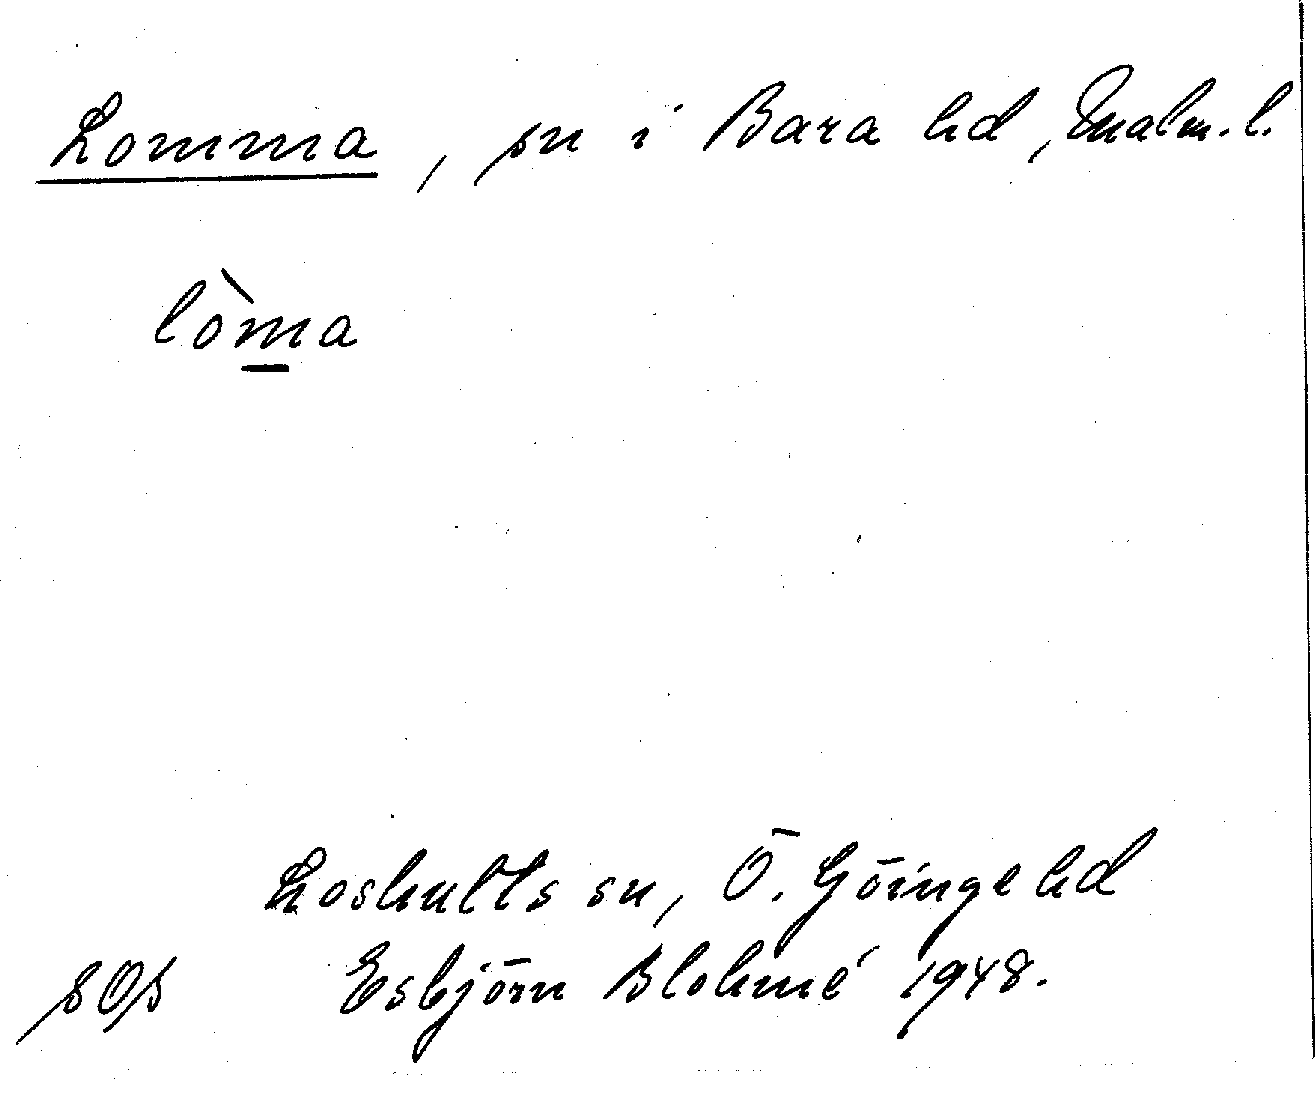 Lomma, sn i Bara hd, Malm. l.
lòma
Loshults sn, Ö. Göinge hd
Esbjörn Blohmé 1948.